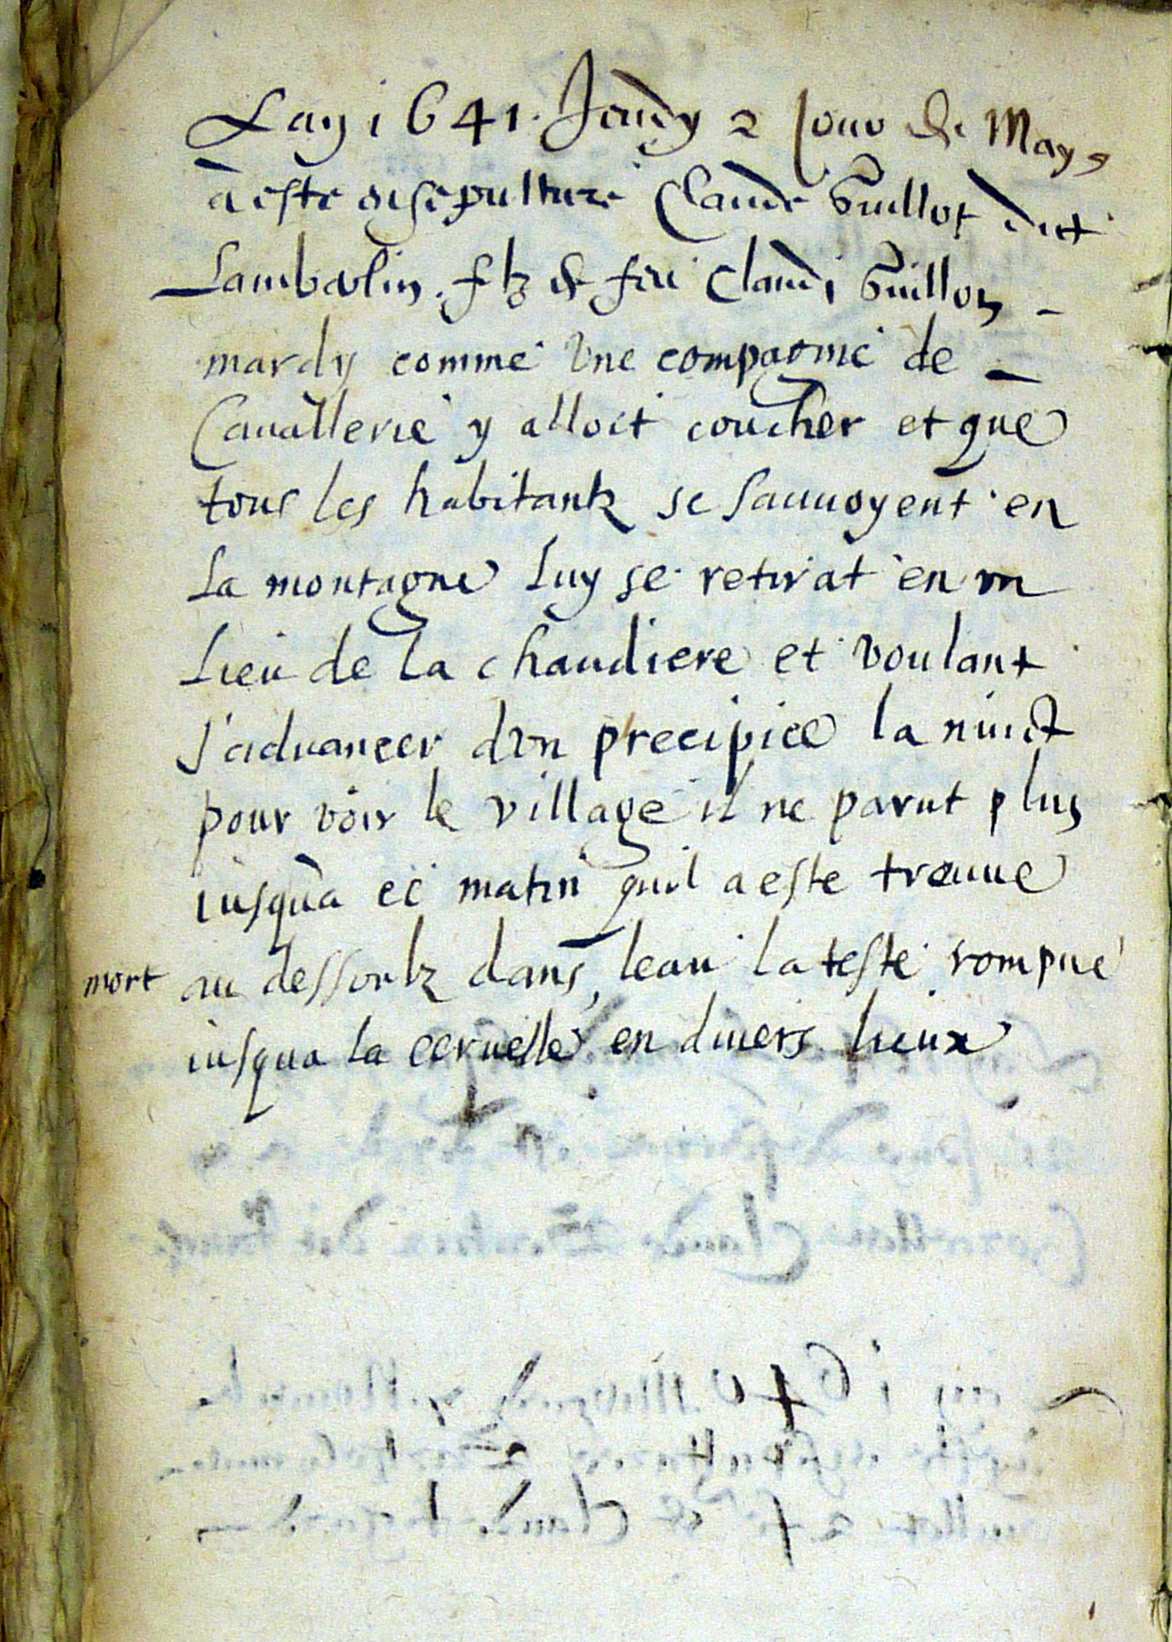 Lan 1641. Jeudy 2 Jour de May
a este ensepulture Claude Guillot dict
Lamboulin. filz de feu Claude Guillot
mardy comme vne compagnie de
Cauallerie y alloit coucher et que
tous les habitantz se sauuoyent en
La montagne Luy se retirat en vn
Lieu de la chaudiere et voulant
s'aduancer d'vn precipice la nuict
pour voir le village il ne parut plus
iusqu'a ce matin quil a este treuue
mort au dessoubz dans leau la teste rompue
iusqua la ceruelle en diuers lieux